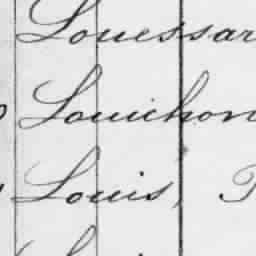 Louessar
Louichon
Louis,